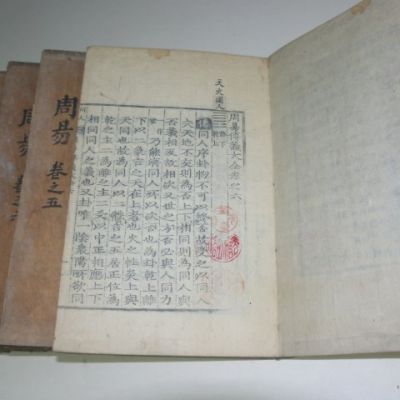 天火同人
周易傳義大全卷之六
離下
乾上
傳同人序卦物不可以終否故受之以同人
夫天地不交則爲否上下相同則爲同人與
否義相反故相次又世之方否必與人同力
乃能濟同人所以次否也爲卦乾上離
下以二象言之天在上者也火之性炎上與
天同也故爲同人以二體言之五居正位爲
乾之主二爲離之主二爻以中正相應上下
相同同人之義也又卦唯一陰衆陽所欲同
周易 卷之五
周易